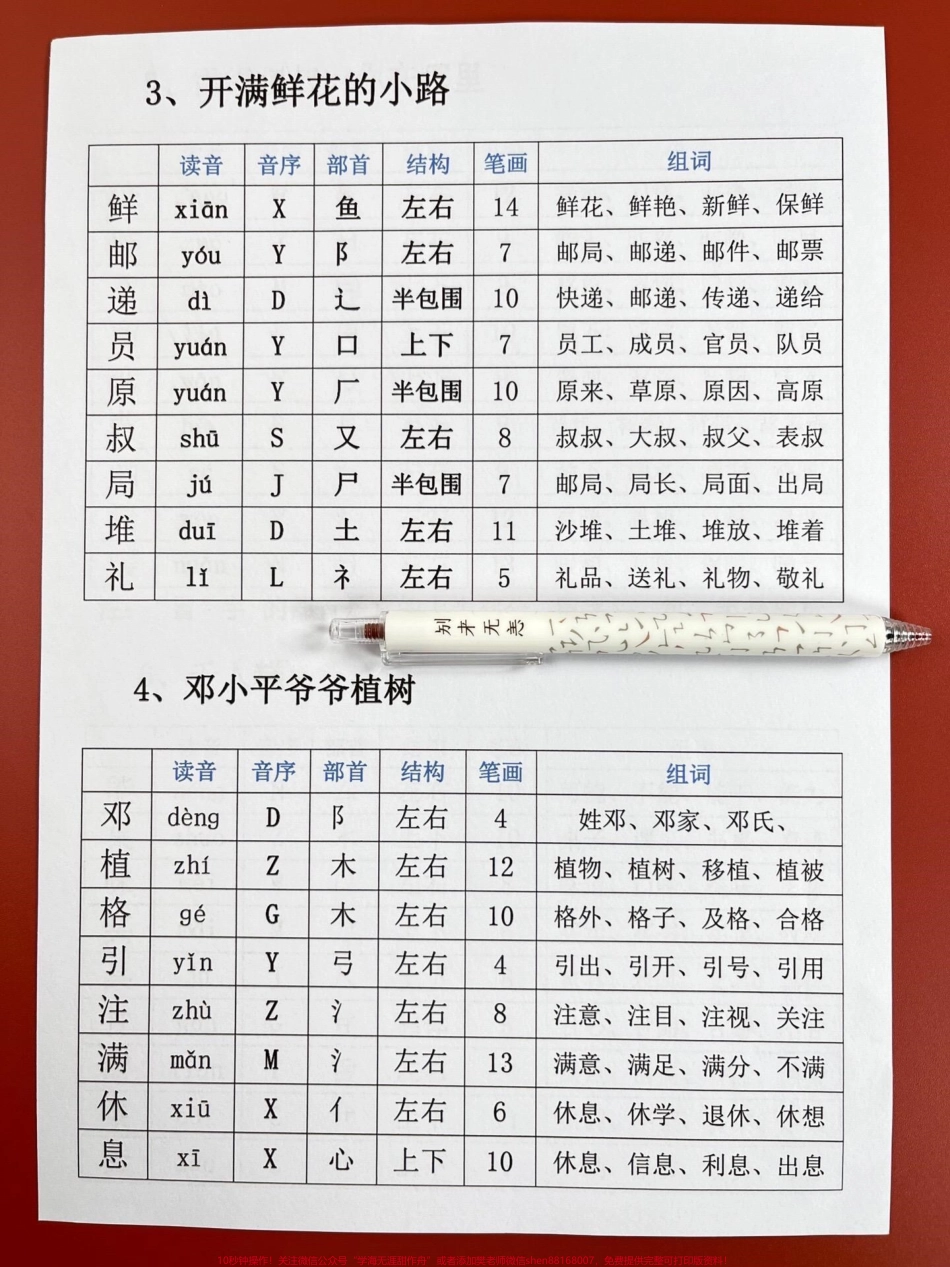 3、开满鲜花的小路
读音 音序 部首 结构 笔画 组词
鲜 xiān X 鱼 左右 14 鲜花、鲜艳、新鲜、保鲜
邮 yóu Y 阝 左右 7 邮局、邮递、邮件、邮票
递 dì D 辶 半包围 10 快递、邮递、传递、递给
员 yuán Y 口 上下 7 员工、成员、官员、队员
原 yuán Y 厂 半包围 10 原来、草原、原因、高原
叔 shū S 又 左右 8 叔叔、大叔、叔父、表叔
局 jú J 尸 半包围 7 邮局、局长、局面、出局
堆 duī D 土 左右 11 沙堆、土堆、堆放、堆着
礼 lǐ L 礻 左右 5 礼品、送礼、礼物、敬礼
别来无恙
4、邓小平爷爷植树
读音 音序 部首 结构 笔画 组词
邓 dèng D 阝 左右 4 姓邓、邓家、邓氏、
植 zhí Z 木 左右 12 植物、植树、移植、植被
格 gé G 木 左右 10 格外、格子、及格、合格
引 yǐn Y 弓 左右 4 引出、引开、引号、引用
注 zhù Z 氵 左右 8 注意、注目、注视、关注
满 mǎn M 氵 左右 13 满意、满足、满分、不满
休 xiū X 亻 左右 6 休息、休学、退休、休想
息 xī X 心 上下 10 休息、信息、利息、出息
10秒钟操作！关注微信公众号“学海无涯甜作舟”或者添加昊老师微信shen88168007，免费提供完整可打印版资料！